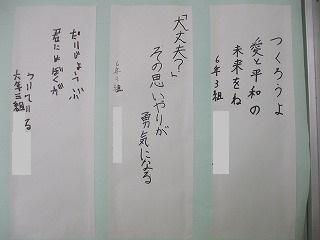 つくろうよ
愛と平和の
未来をね
6年3組
「大丈夫?」
その思いやりが
勇気になる
6年3組
だいじょうぶ
君にはぼくが
ついている
六年三組